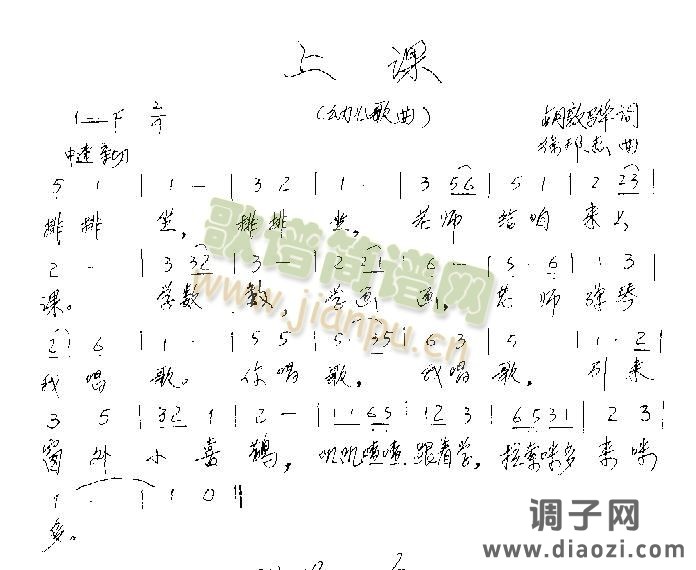 上课
1=F 2/4 (幼儿歌曲) 胡敦骅词
中速 亲切 徐邦杰曲
5 1 | 1 - | 3 2 | 1 · | 3 56 | 5 1 | 2 23 |
排排 坐, 排排 坐, 老师 给咱 来上
2 - | 3 32 | 3 - | 2 21 | 6 - | 5 · 6 | 1 3 |
课。 学数 数, 学画 画, 老师 弹琴
2 6 | 1 · | 5 5 | 5 35 | 6 3 | 5 | 1 · 2 |
我唱 歌。 你唱 歌, 我唱 歌, 引来
3 5 | 32 1 | 2 - | 11 65 | 12 3 | 6531 | 2 3 |
窗外 小喜 鹊, 叽叽喳喳 跟着学, 拉索咪多 来咪
1 · | 1 0 ‖
多。
歌谱简谱网
www.jianpu.cn
调子网
www.diaozi.com